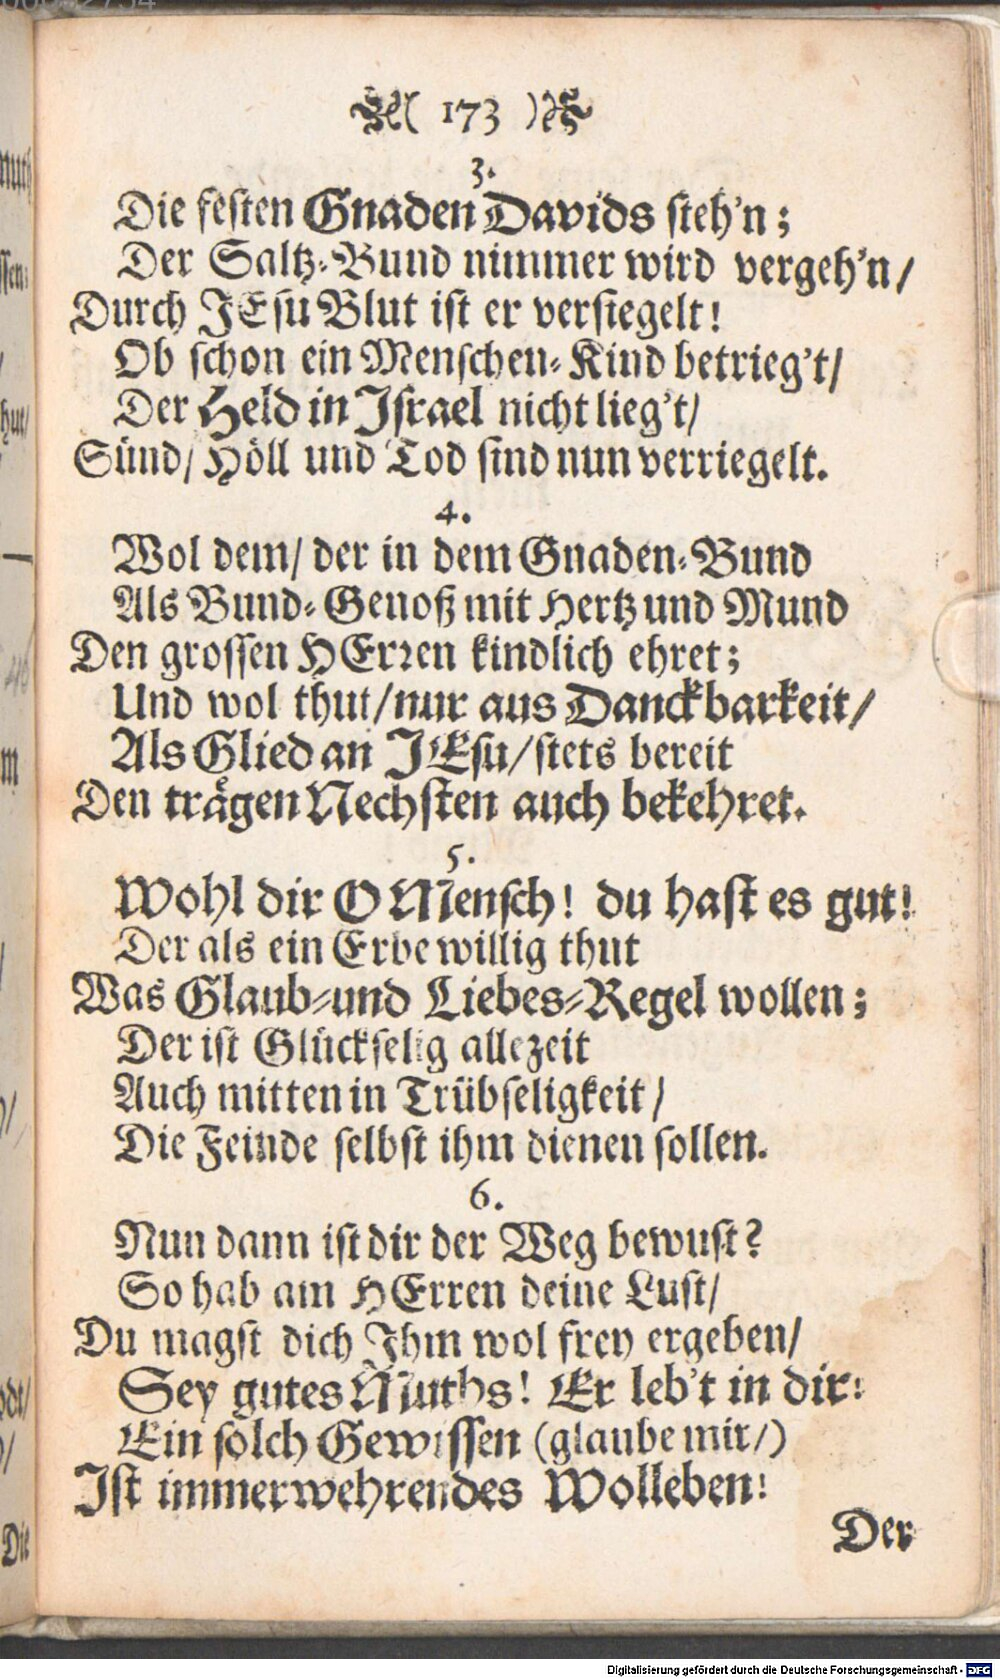 ( 173 )
3.
Die festen Gnaden Davids steh'n;
Der Saltz-Bund nimmer wird vergeh'n/
Durch JEsu Blut ist er versiegelt!
Ob schon ein Menschen-Kind betrieg't/
Der Held in Israel nicht lieg't/
Sünd/ Höll und Tod sind nun verriegelt.
4.
Wol dem/ der in dem Gnaden-Bund
Als Bund-Genoß mit Hertz und Mund
Den grossen HErren kindlich ehret;
Und wol thut/ nur aus Danckbarkeit/
Als Glied an JEsu/ stets bereit
Den trägen Nechsten auch bekehret.
5.
Wohl dir O Mensch! du hast es gut!
Der als ein Erbe willig thut
Was Glaub-und Liebes-Regel wollen;
Der ist Glückselig allezeit
Auch mitten in Trübseligkeit/
Die Feinde selbst ihm dienen sollen.
6.
Nun dann ist dir der Weg bewust?
So hab am HErren deine Lust/
Du magst dich Ihm wol frey ergeben/
Sey gutes Muths! Er leb't in dir!
Ein solch Gewissen (glaube mir/)
Ist immerwehrendes Wolleben!
Der
Digitalisierung gefördert durch die Deutsche Forschungsgemeinschaft - DFG